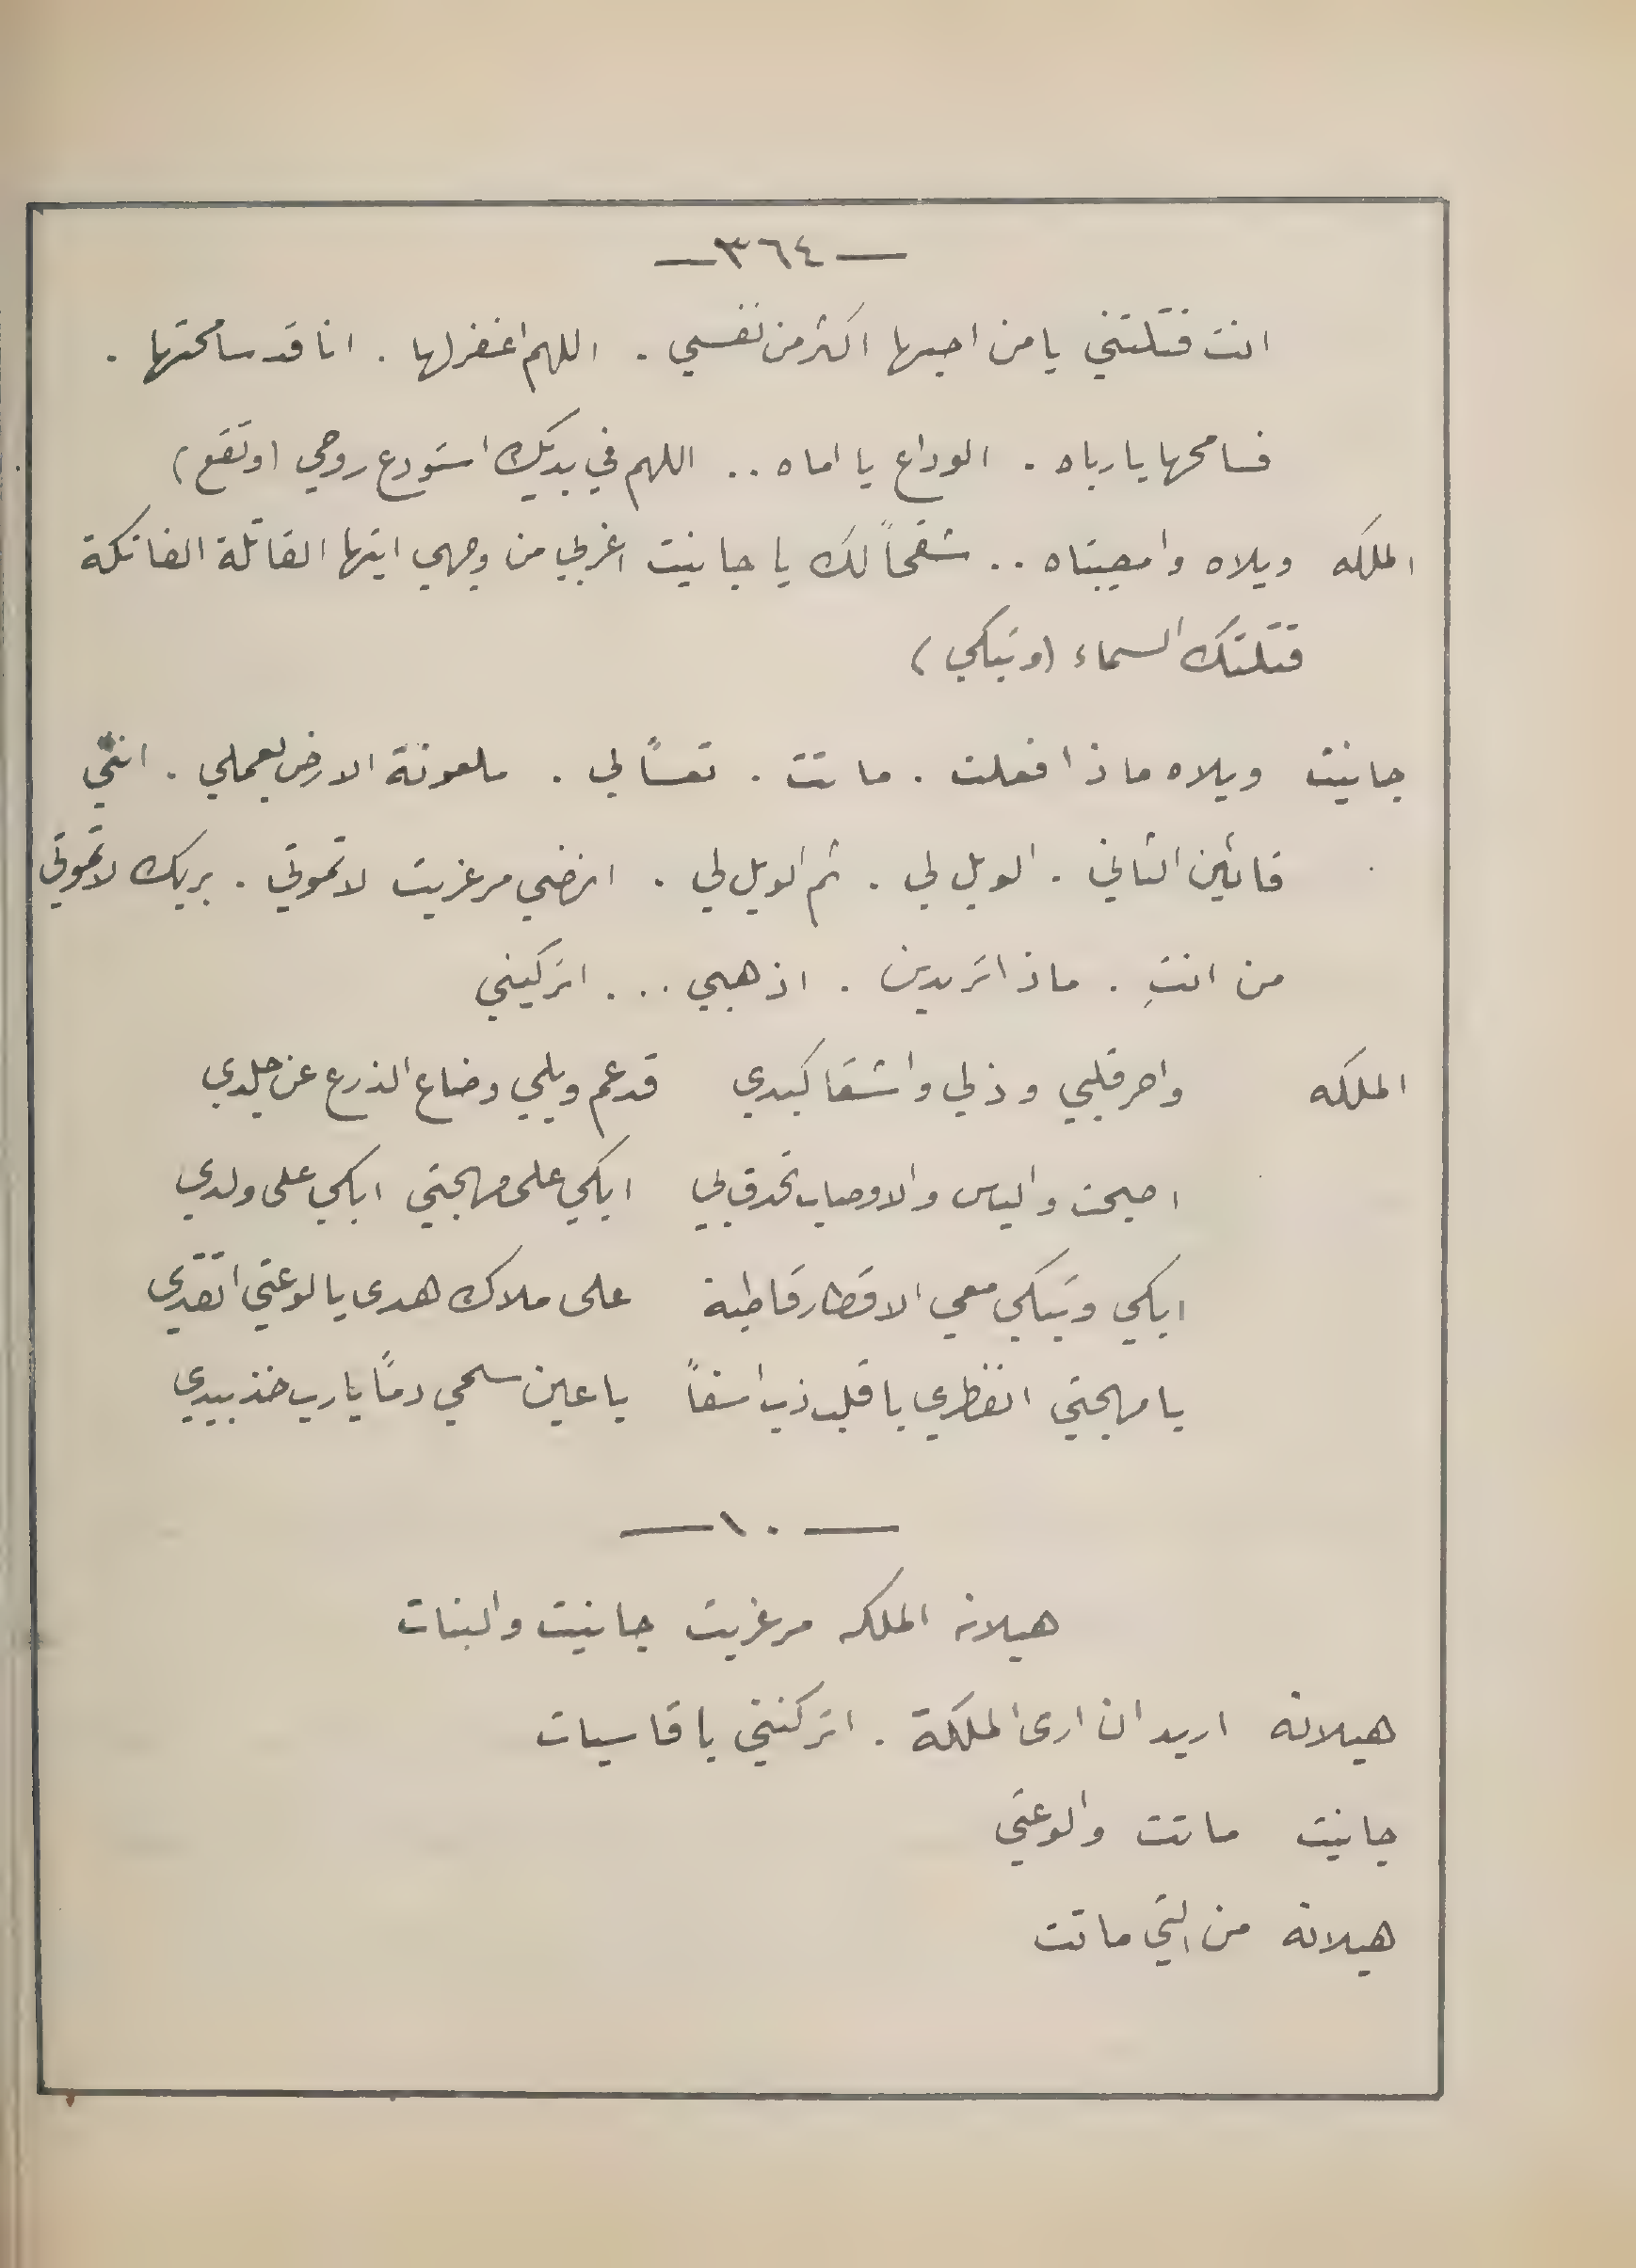 —٣٦٤—
انت قتلتني يا من احبها اكثر من نفسي . اللهم اغفر لها . انا قد سامحتها .
فسامحها يا رباه . الوداع يا اماه .. اللهم في يديك استودع روحي (وتقع)
الملكه ويلاه وامصيبتاه .. شقحاً لك يا جانيت اغربي من وجهي ايتها القاتلة الفاتكة
قتلتك السماء (وتبكي)
جانيت ويلاه ماذا فعلت . ماتت . تعساً لي . ملعونة الارض بعملي . انني
قائين الثاني . الويل لي . ثم الويل لي . انهضي مرغريت لا تموتي . بربك لا تموتي
من انتِ . ماذا تريدين . اذهبي ... اتركيني
الملكه واحر قلبي وذلي واشقا كبدي قد عم ويلي وضاع الذرع عن جلدي
اصبحت واليأس والاوصاب تحدق بي ابكي على مهجتي ابكي على ولدي
ابكي وتبكي معي الاقطار قاطبة على ملاك هدى يا لوعتي اتقدي
يا مهجتي انفطري يا قلب ذب اسفاً يا عين سحي دمًا يا رب خذ بيدي
—١٠—
هيلانه الملكه مرغريت جانيت والبنات
هيلانه اريد ان ارى الملكة . اتركنني يا قاسيات
جانيت ماتت والوعتي
هيلانه من التي ماتت